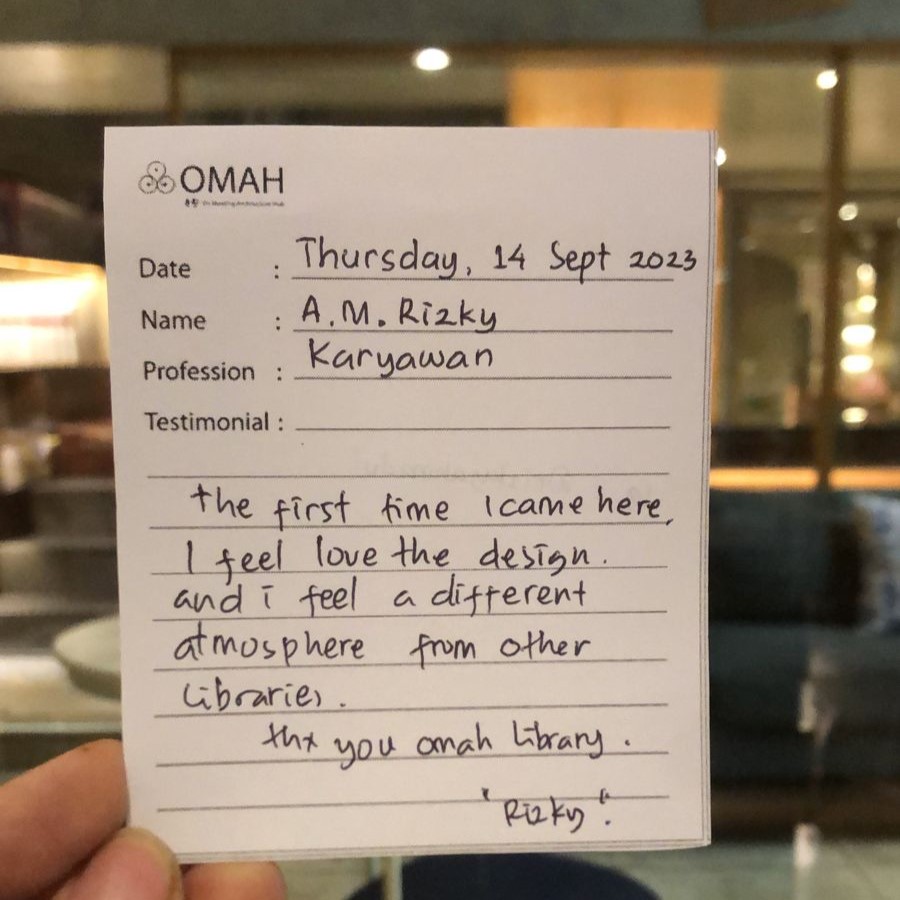 OMAH
Date : Thursday, 14 Sept 2023
Name : A.M. Rizky
Profession : Karyawan
Testimonial :
the first time I came here,
I feel love the design.
and i feel a different
atmosphere from other
libraries.
thx you omah library.
"Rizky".